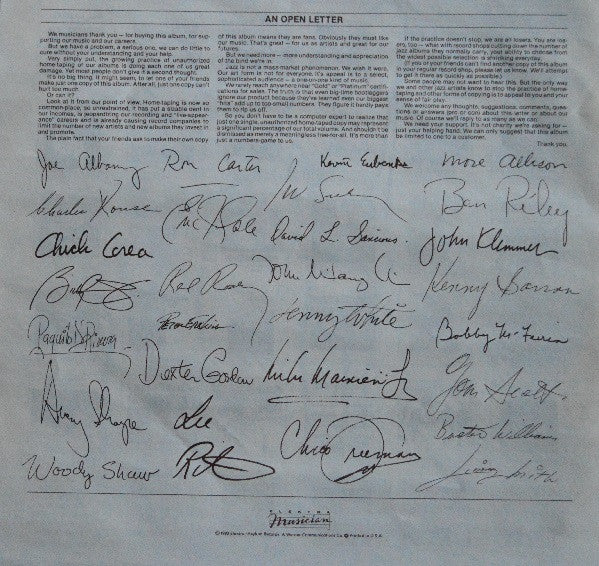 AN OPEN LETTER
We musicians thank you — for buying this album, for sup-
porting our music and our careers.
But we have a problem, a serious one, we can do little to
cure without your understanding and help.
Very simply put, the growing practice of unauthorized
home-taping of our albums is doing each one of us great
damage. Yet most people don't give it a second thought.
It's no big thing, it might seem, to let one of your friends
make just one copy of this album. After all, just one copy can't
hurt too much.
Or can it?
Look at it from our point of view. Home-taping is now so
common-place, so unrealized, it has put a sizable dent in
our incomes, is jeopardizing our recording and "live-appear-
ance" careers and is already causing record companies to
limit the number of new artists and new albums they invest in
and promote.
The plain fact that your friends ask to make their own copy
of this album means they are fans. Obviously they must like
our music. That's great — for us as artists and great for our
futures.
But we need more — more understanding and appreciation
of the bind we're in.
Jazz is not a mass-market phenomenon. We wish it were.
Our art form is not for everyone. It's appeal is to a select,
sophisticated audience — a one-on-one kind of music.
We rarely reach anywhere near "Gold" or "Platinum" certi-
fications for sales. The truth is that even big-time bootleggers
ignore our product because they've learned even our biggest
"hits" add up to too-small numbers. They figure it hardly pays
them to rip us off.
So you don't have to be a computer expert to realize that
just a single, unauthorized home-taped copy may represent
a significant percentage of our total volume. And shouldn't be
dismissed as merely a meaningless free-for-all. It's more than
just a numbers-game to us.
if the practice doesn't stop, we are all losers. You are los-
ers, too — what with record shops cutting down the number of
jazz albums they normally carry, your ability to choose from
the widest possible selection is shrinking everyday.
(If any of your friends can't find another copy of this album
in your regular record store, please let us know. We'll attempt
to get it there as quickly as possible.)
Some people may not want to hear this. But the only way
we and other jazz artists know to stop the practice of home-
taping and other forms of copying is to appeal to you and your
sense of fair play.
We welcome any thoughts, suggestions, comments, ques-
tions or answers (pro or con) about this letter or about our
music. Of course we'll reply to as many as we can.
We need your support. It's not charity we're asking for —
just your helping hand. We can only suggest that this album
be limited to one to a customer.
Thank you.
Joe Albany Ron Carter Kevin Eubanks Mose Allison
Charlie Rouse Eric Gale Ben Riley
David L. Sancious John Klemmer
Chick Corea Kenny Barron
Lenny White Bobby McFerrin
Paquito D'Rivera
Dexter Gordon Mike Mainieri Jr Tom Scott
Avery Sharpe Lee Chico Freeman Buster Williams
Woody Shaw Rit Jimmy Smith
ELEKTRA
Musician